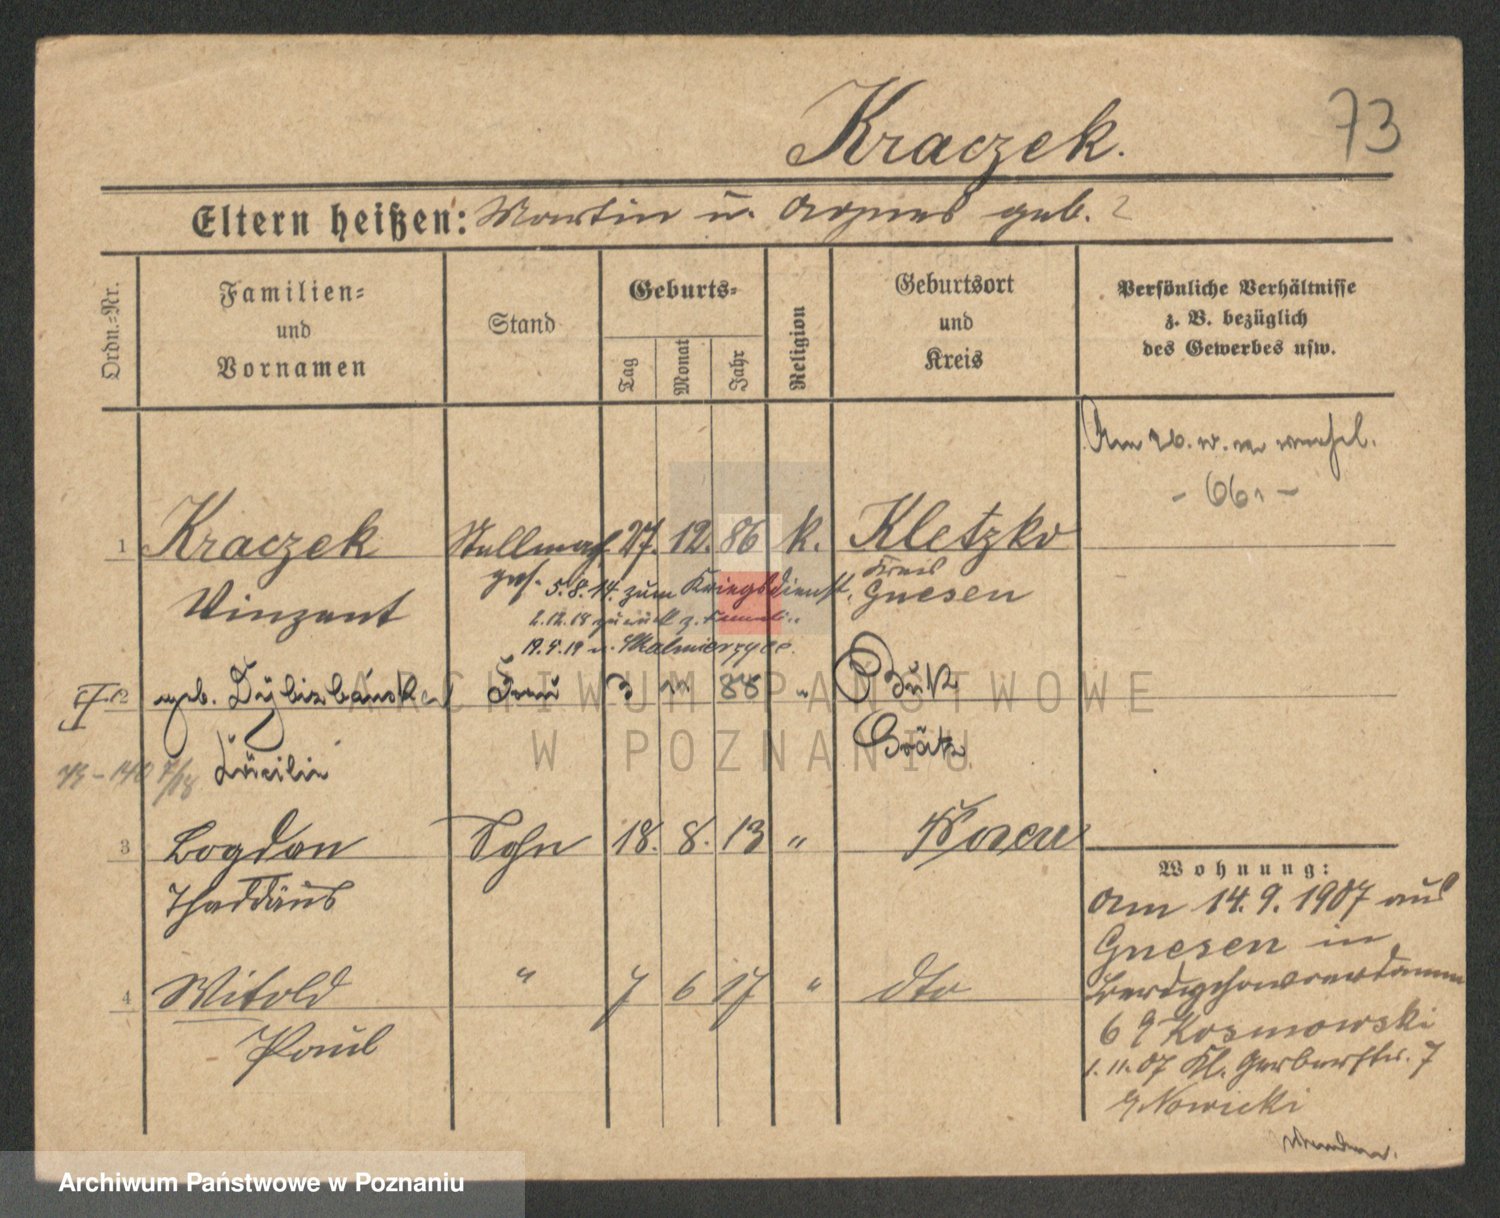 Kraczek.
73
Eltern heißen: Martin u. Agnes geb. ?
Ordn.-Nr.
Familien-
und
Vornamen
Stand
Geburts-
Tag
Monat
Jahr
Religion
Geburtsort
und
Kreis
Persönliche Verhältnisse
z. B. bezüglich
des Gewerbes usw.
Am 26.
- 661 -
1 Kraczek Stellmach. 27. 12. 86 k. Kletzko
ges. 5.8.14. zum Kriegsdienst. Kreis
Vinzent Gnesen
2.12.18 zurück z. Famili..
19.9.19 n. Skalmierzyce.
2 geb. Frau 3 88 " Buk
Grätz
73-140 7/18 Cäcilie
3 Bogdan Sohn 18. 8. 13 " Posen
Thaddäus
4 Witold " 7 6 17 " dto
Paul
Wohnung:
Am 14.9.1907 aus
Gnesen in
Berdychowoerdamm
6 b/ Kosmowski
1.11.07 Kl. Gerberstr. 7
b/ Nowicki
Wenden.
ARCHIWUM PAŃSTWOWE
W POZNANIU
Archiwum Państwowe w Poznaniu